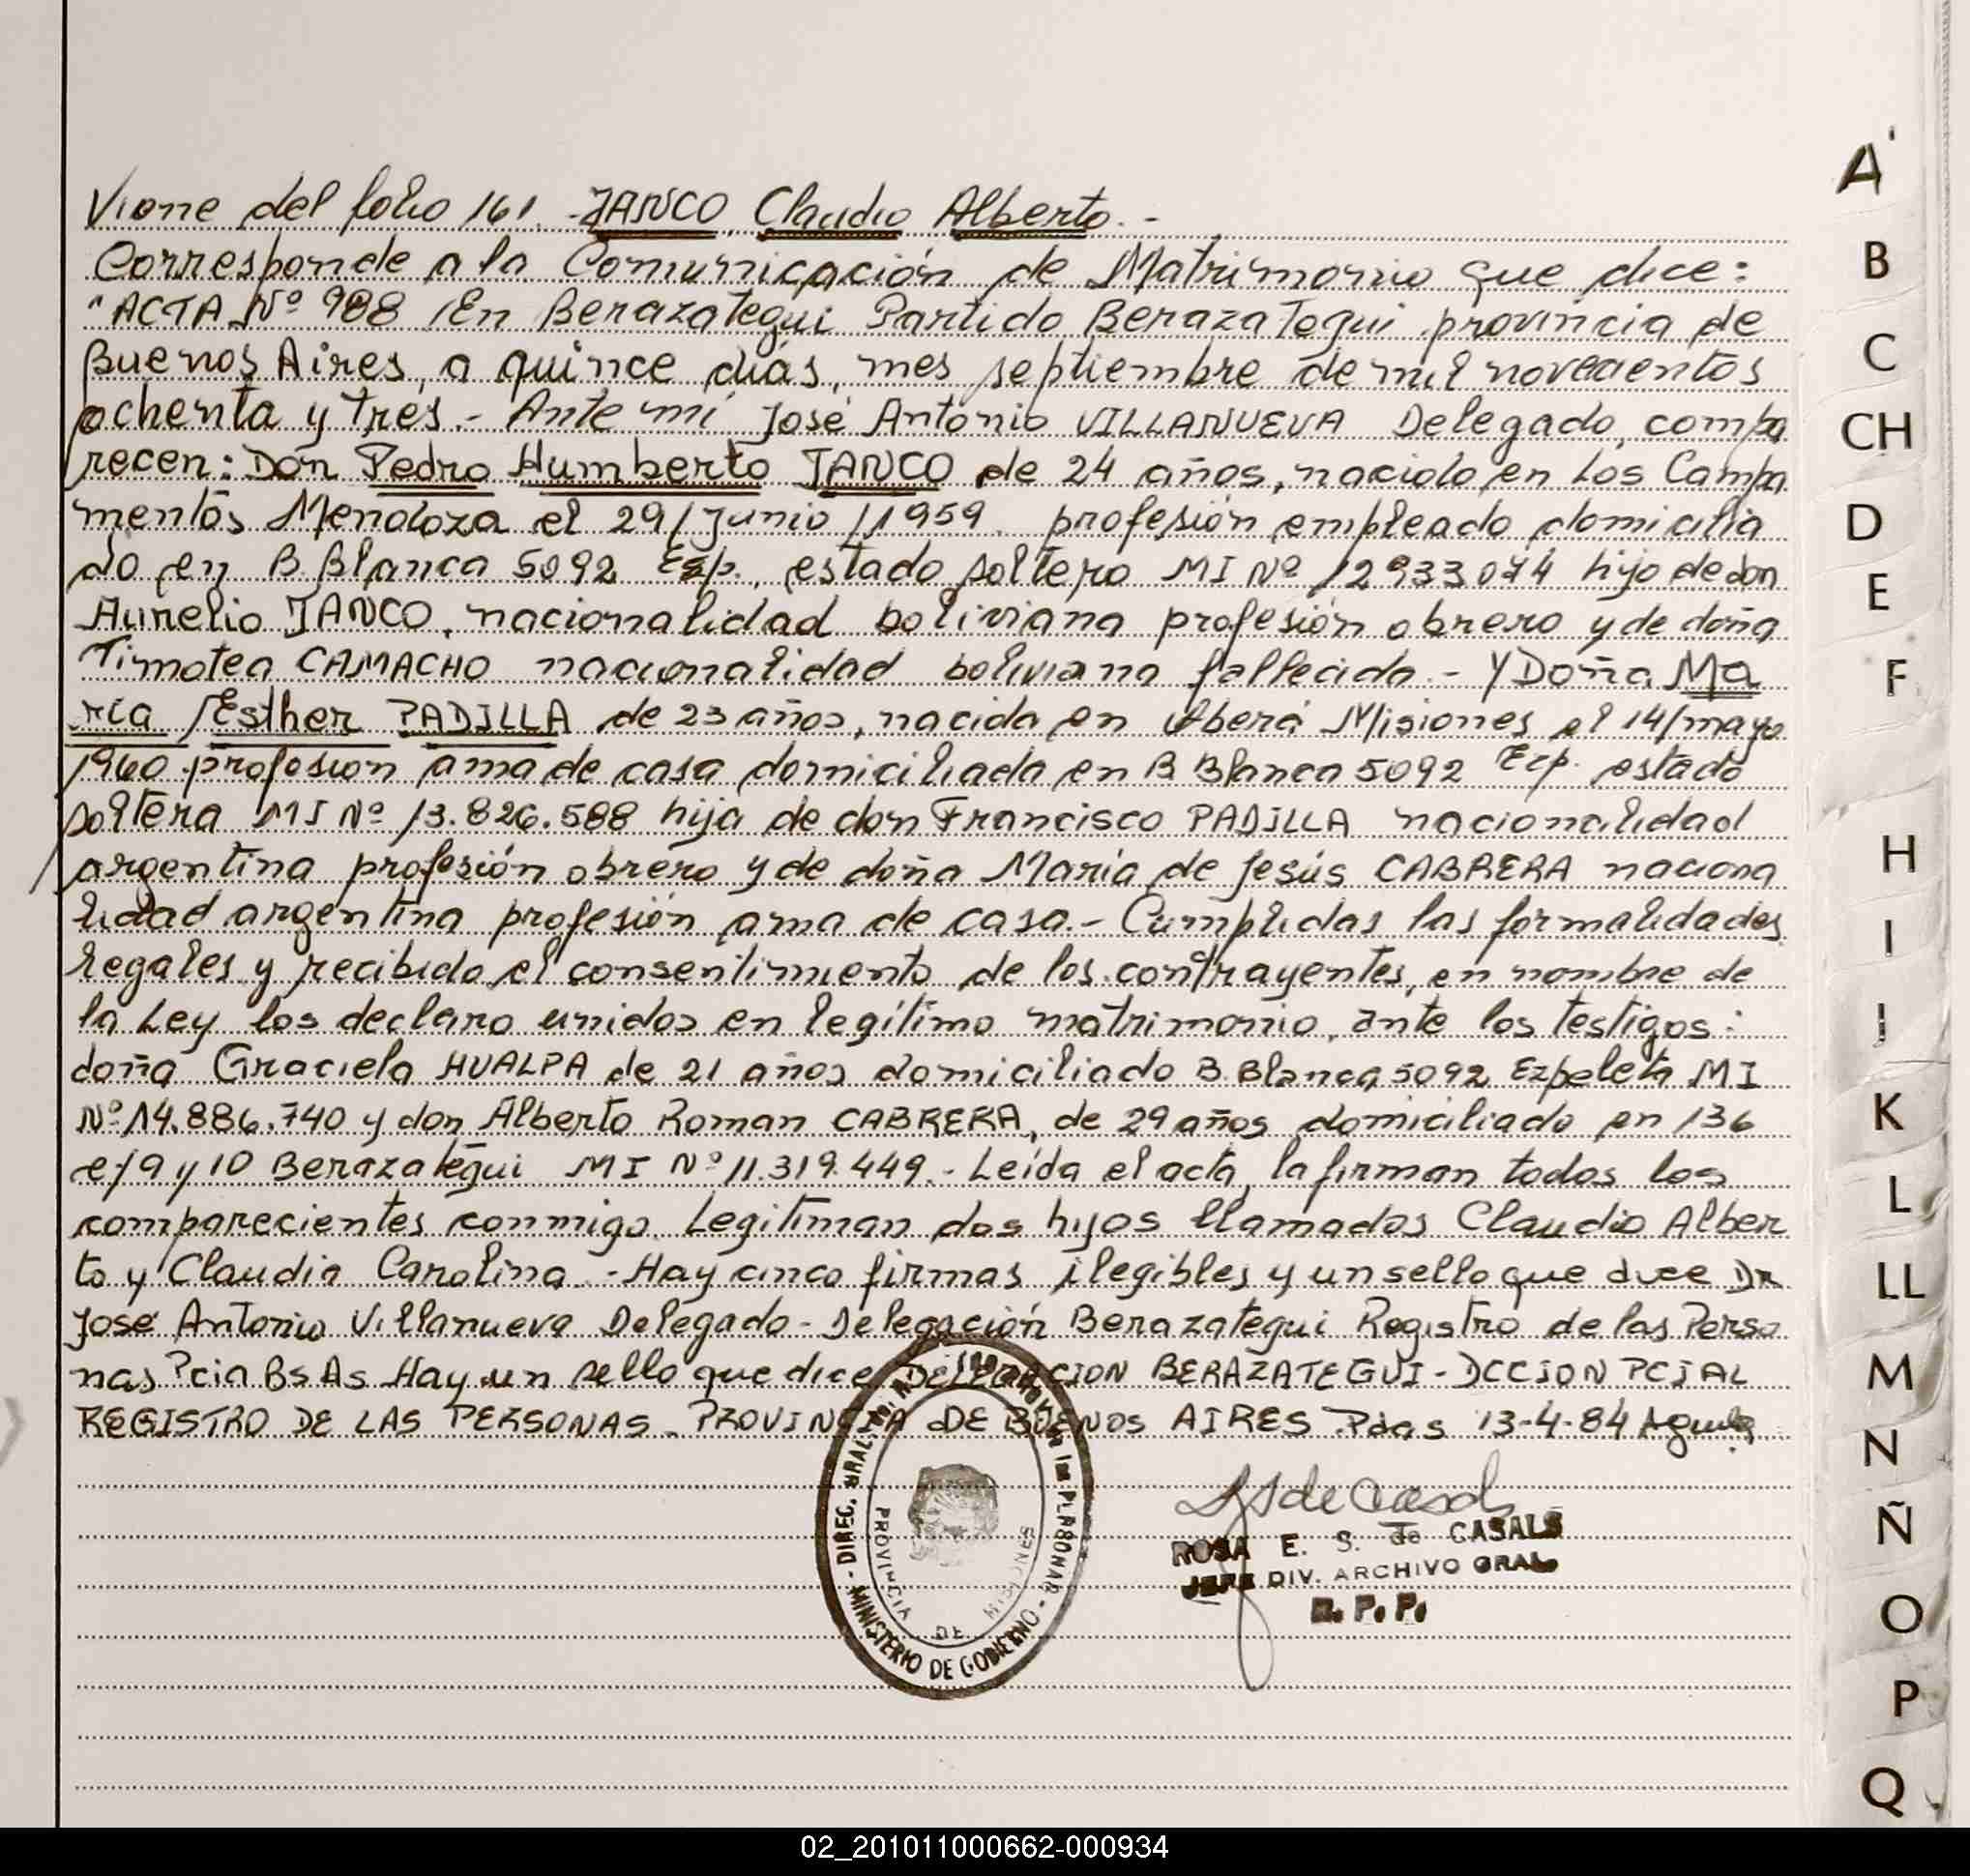 Viene del folio 161. - JANCO Claudio Alberto. -
Corresponde a la Comunicación de Matrimonio que dice:
"ACTA Nº 988 En Berazategui Partido Berazategui provincia de
Buenos Aires, a quince días, mes septiembre de mil novecientos
ochenta y tres. - Ante mí José Antonio VILLANUEVA Delegado, compa
recen: Don Pedro Humberto JANCO de 24 años, nacido en Los Campa
mentos Mendoza el 29/Junio/1959. profesión empleado domicilia
do en B. Blanca 5092 Ezp., estado soltero MI Nº 12933074 hijo de don
Aurelio JANCO, nacionalidad boliviana profesión obrero y de doña
Timotea CAMACHO nacionalidad boliviana fallecida. - Y Doña Ma
ría Esther PADILLA de 23 años, nacida en Oberá Misiones el 14/mayo
1960 profesion ama de casa domiciliada en B Blanca 5092 Ezp. estado
soltera MI Nº 13.826.588 hija de don Francisco PADILLA nacionalidad
argentina profesión obrero y de doña María de Jesús CABRERA naciona
lidad argentina profesión ama de casa. - Cumplidas las formalidades
legales y recibido el consentimiento de los contrayentes, en nombre de
la Ley los declaro unidos en legítimo matrimonio, ante los testigos:
doña Graciela HUALPA de 21 años domiciliado B. Blanca 5092 Ezpeleta MI
Nº 14.886.740 y don Alberto Roman CABRERA, de 29 años domiciliado en 136
e/9 y 10 Berazategui MI Nº 11.319.449. - Leída el acta, la firman todos los
comparecientes conmigo. Legitiman dos hijos llamados Claudio Alber
to y Claudia Carolina. - Hay cinco firmas ilegibles y un sello que dice Dr
José Antonio Villanueva Delegado - Delegación Berazategui Registro de las Perso
nas Pcia Bs As Hay un sello que dice DELEGACION BERAZATEGUI - DCCION PCIAL
REGISTRO DE LAS PERSONAS. PROVINCIA DE BUENOS AIRES Pdas 13-4-84
MINISTERIO DE GOBIERNO - DIREC. GRAL.
PROVINCIA DE MISIONES
ROSA E. S. de CASALS
JEFE DIV. ARCHIVO GRAL
R. P. P.
A
B
C
CH
D
E
F
H
I
J
K
L
LL
M
N
Ñ
O
P
Q
02_201011000662-000934